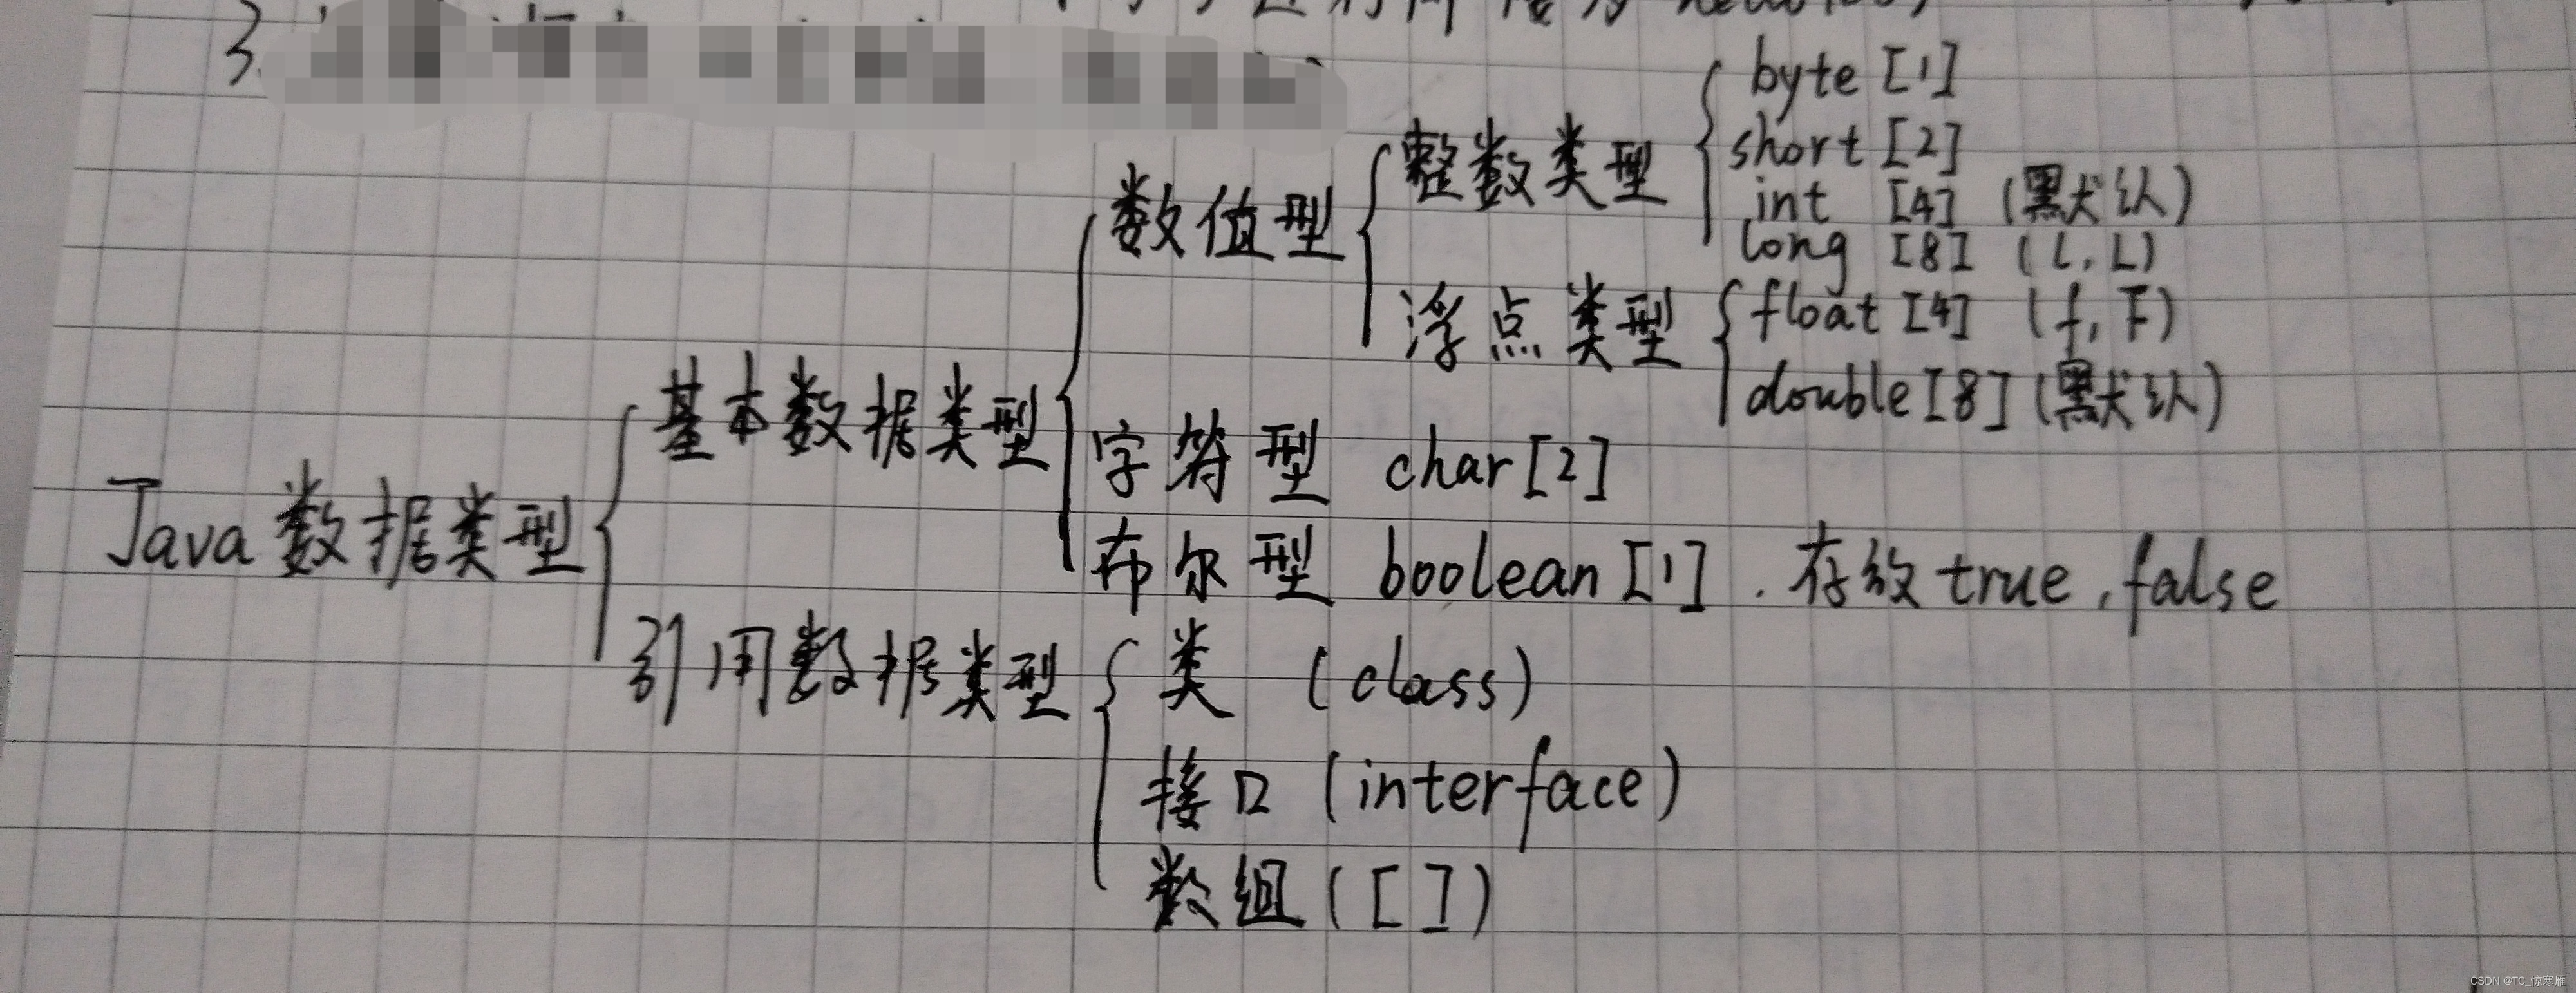 3.
byte [1]
short [2]
整数类型
int [4] (默认)
数值型
long [8] (l, L)
浮点类型
float [4] (f, F)
double [8] (默认)
基本数据类型
字符型 char [2]
Java 数据类型
布尔型 boolean [1] . 存放 true , false
引用数据类型
类 (class)
接口 (interface)
数组 ([ ])
CSDN @TC_惊寒雁